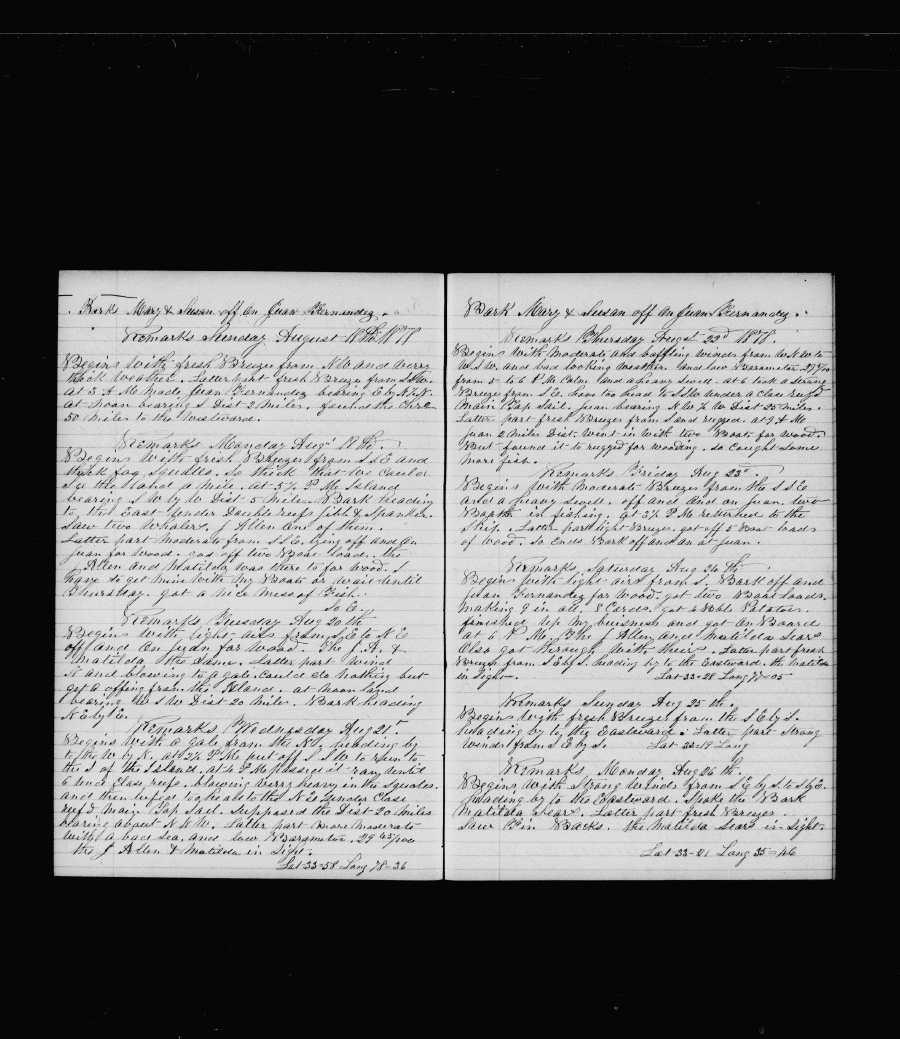 Bark Mary & Susan off On Juan Fernandez.
Remarks Sunday August 18th 1878
Begins With fresh Breezes from N.W and Verry
thick Weather. Latter part fresh Breeze from SSW.
At 3 A.M Made Juan Fernandez bearing E by N½N.
At Noon bearing S Dist 2 Miles. found the Chro
50 Miles to the Westward.
Remarks Monday Aug 19th
Begins With fresh Breezes from S S E and
thick fog Squalls. So thick that We Could
See the land a Mile. At 5½ P M. Island
bearing S W by W Dist 5 Miles. Bark heading
to the East Under Double reefs jibb & Spanker.
Saw two Whalers, J Allen One of them.
Latter part Moderate from S S E. lying off and On
Juan for Wood. got off two Boat load. the
J Allen and Matilda was there to for Wood. I
have to get Mine With My Boats or Wait Until
Thursday. got a Nice Mess of Fish.
So E.
Remarks Tuesday Aug 20th
Begins With light airs from S E to N E
off and On Juan for Wood. The J. A. &
Matilda the Same. Latter part Wind
N and blowing to a gale. Could do Nothing but
get a offing from the Island. At Noon land
bearing W S W Dist 20 Miles. Bark heading
N E by E.
Remarks Wednesday Aug 21st
Begins With a gale from the N. heading by
to the W by N. At 2½ P M put off S S W to run to
the S of the Island. At 4 P M passed it ran Until
6 Under Close reefs. blowing Verry heavy in the Squalls.
and then luffed to heads to the N E Under Close
reefd Main Top Sail. Supposed the Dist 20 Miles
bearing about N N W. Latter part More Moderate
With a bad Sea, and low Barometer. 29
the J Allen & Matilda in Sight.
Lat 33=58 Long 78=36
Bark Mary & Susan off On Juan Fernandez.
Remarks Thursday Aug 22d 1878.
Begins With Moderate and baffling Winds from W N W to
W S W and bad looking Weather, and low Barometer
from 5 to 6 P. M. Calm and a heavy Swell. at 6 took a Strong
Breeze from S E. to head to SSW Under a Close reefd
Main Top Sail. Juan bearing N W ½ W Dist 25 Miles.
Latter part fresh Breezes from S and rugged. At 9 A M
Juan 2 Miles Dist. Went in With two Boats for Wood.
But found it to rugged for Wooding. So Caught Some
More fish.
Remarks Friday Aug 23d.
Begins With Moderate Breezes from the S S E
and a heavy Swell. off and On Juan two
Boats in fishing. At 3½ P M returned to the
Ship. Latter part light Breezes. got off 5 Boat loads
of Wood. So Ends Bark off and on at Juan.
Remarks Saturday Aug 24th
Begins With light airs from S. Bark off and
Juan Fernandez for Wood. got two Boat loads.
Making 9 in all. 8 Cords. got 4 Bbls Potatoes.
finished Up My buisness and got On Board
at 6 P. M. The J Allen, and Matilda Sears
Also got through With theirs. Latter part fresh
Breezes from S E by S. heading by to the Eastward. the Matilda
in Sight.
Lat 33=28 Long 77=05
Remarks Sunday Aug 25th.
Begins With fresh Breezes from the S E by S.
heading by to the Eastward. Latter part Strong
Winds from S E by S. Lat 33=19 Long
Remarks Monday Aug 26th.
Begins With Strong Winds from S E by S. to S by E.
heading by to the Eastward. Spoke the Bark
Matilda Sears. Latter part fresh Breezes.
Saw Fin Backs. the Matilda Sears in Sight.
Lat 33=21 Long 35=46